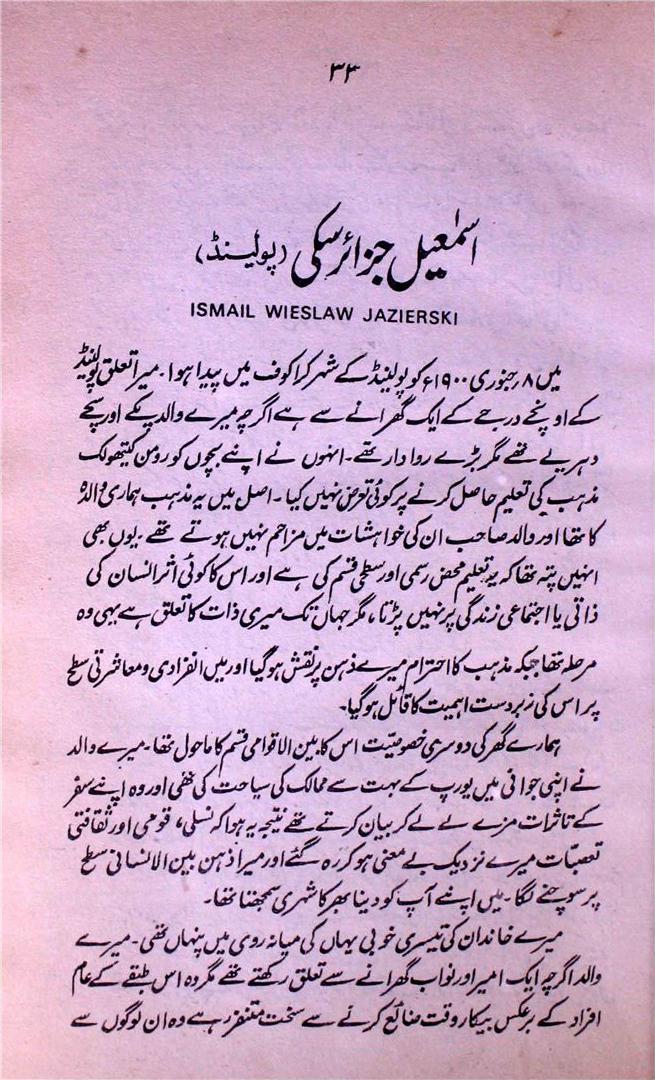 ۳۳
اسمٰعیل جزائرسکی (پولینڈ)
ISMAIL WIESLAW JAZIERSKI
میں ۸؍ جنوری ۱۹۰۰ء کو پولینڈ کے شہر کراکوف میں پیدا ہوا۔ میرا تعلق پولینڈ
کے اونچے درجے کے ایک گھرانے سے ہے اگرچہ میرے والد پکے اور سچے
دہریے تھے مگر بڑے روادار تھے۔ انہوں نے اپنے بچوں کو رومن کیتھولک
مذہب کی تعلیم حاصل کرنے پر کوئی تعرض نہیں کیا۔ اصل میں یہ مذہب ہماری والدہ
کا تھا اور والد صاحب ان کی خواہشات میں مزاحم نہیں ہوتے تھے۔ یوں بھی
انہیں پتہ تھا کہ یہ تعلیم محض رسمی اور سطحی قسم کی ہے اور اس کا کوئی اثر انسان کی
ذاتی یا اجتماعی زندگی پر نہیں پڑتا، مگر جہاں تک میری ذات کا تعلق ہے یہی وہ
مرحلہ تھا جبکہ مذہب کا احترام میرے ذہن پر نقش ہو گیا اور میں انفرادی و معاشرتی سطح
پر اس کی زبردست اہمیت کا قائل ہو گیا۔
ہمارے گھر کی دوسری خصوصیّت اس کا بین الاقوامی قسم کا ماحول تھا۔ میرے والد
نے اپنی جوانی میں یورپ کے بہت سے ممالک کی سیاحت کی تھی اور وہ اپنے سفر
کے تاثرات مزے لے لے کر بیان کرتے تھے نتیجہ یہ ہوا کہ نسلی، قومی اور ثقافتی
تعصبات میرے نزدیک بے معنی ہو کر رہ گئے اور میرا ذہن بین الانسانی سطح
پر سوچنے لگا۔ میں اپنے آپ کو دینا بھر کا شہری سمجھتا تھا۔
میرے خاندان کی تیسری خوبی یہاں کی میانہ روی میں پنہاں تھی۔ میرے
والد اگرچہ ایک امیر اور نواب گھرانے سے تعلق رکھتے تھے مگر وہ اس طبقے کے عام
افراد کے برعکس بیکار وقت ضائع کرنے سے سخت متنفر رہے وہ ان لوگوں سے